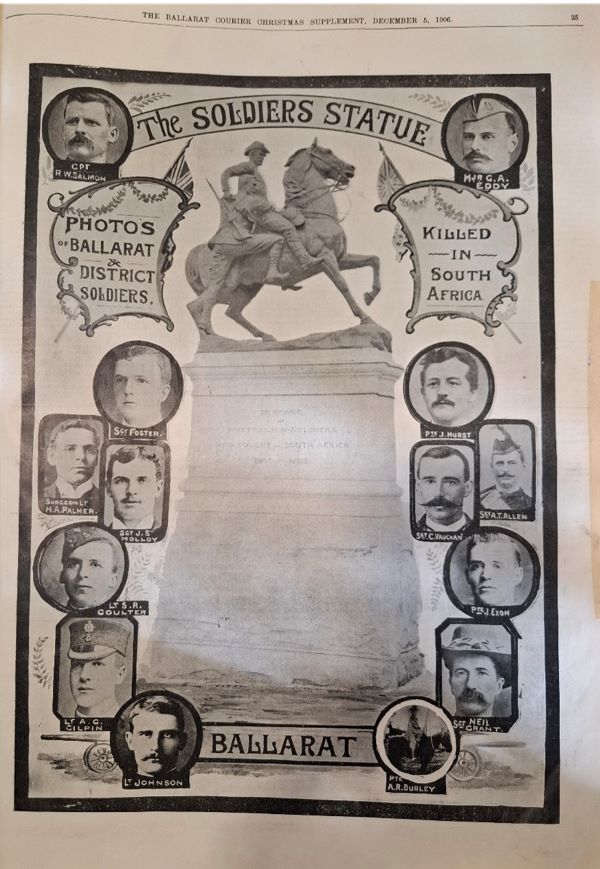 THE BALLARAT COURIER CHRISTMAS SUPPLEMENT, DECEMBER 5, 1906.
25
The SOLDIERS STATUE
CPT
R.W.SALMON
MJR G.A.
EDDY
PHOTO'S
OF BALLARAT
&
DISTRICT
SOLDIERS.
KILLED
IN
SOUTH
AFRICA
IN HONOR
AUSTRALIAN SOLDIERS
FOUGHT SOUTH AFRICA
SGT FOSTER.
PTE J. HURST
SURGEON LT
H.A. PALMER.
SGT J. S
MOLLOY
SGT C. VAUGHAN
SGT A.T. ALLEN
LT S.R.
COULTER
PTE J. EXON
LT A. G.
GILPIN
SGT NEIL
GRANT.
LT JOHNSON
BALLARAT
PTE
A.R. BURLEY